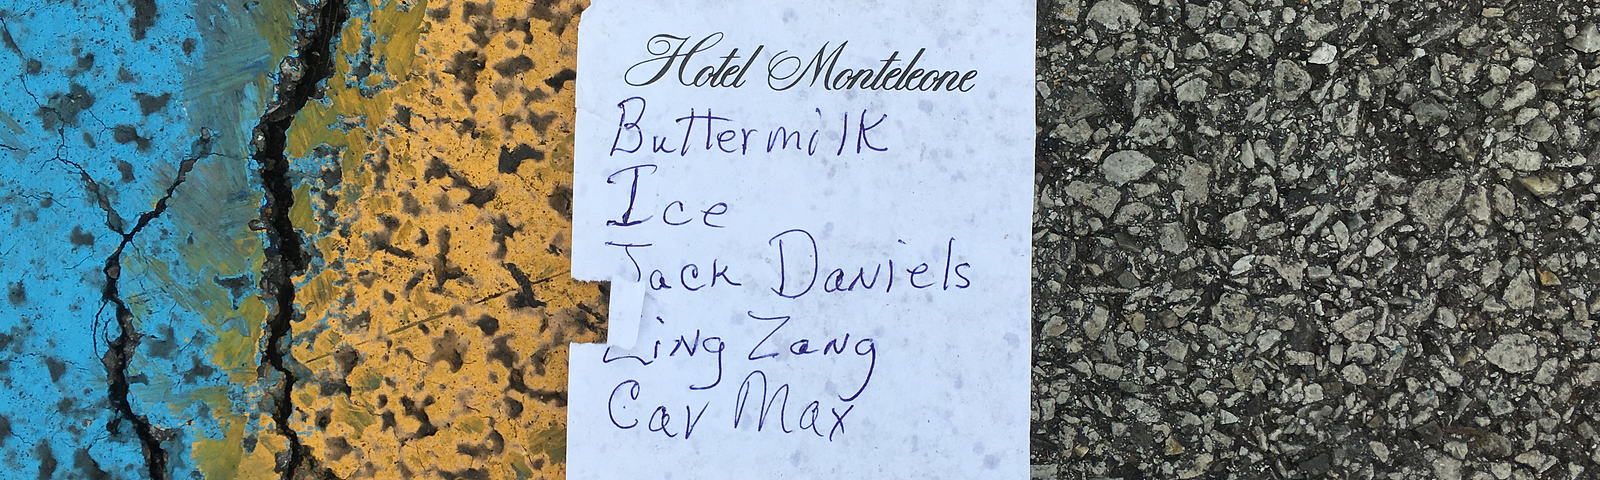 Hotel Monteleone
Buttermilk
Ice
Jack Daniels
Zing Zang
Car Max